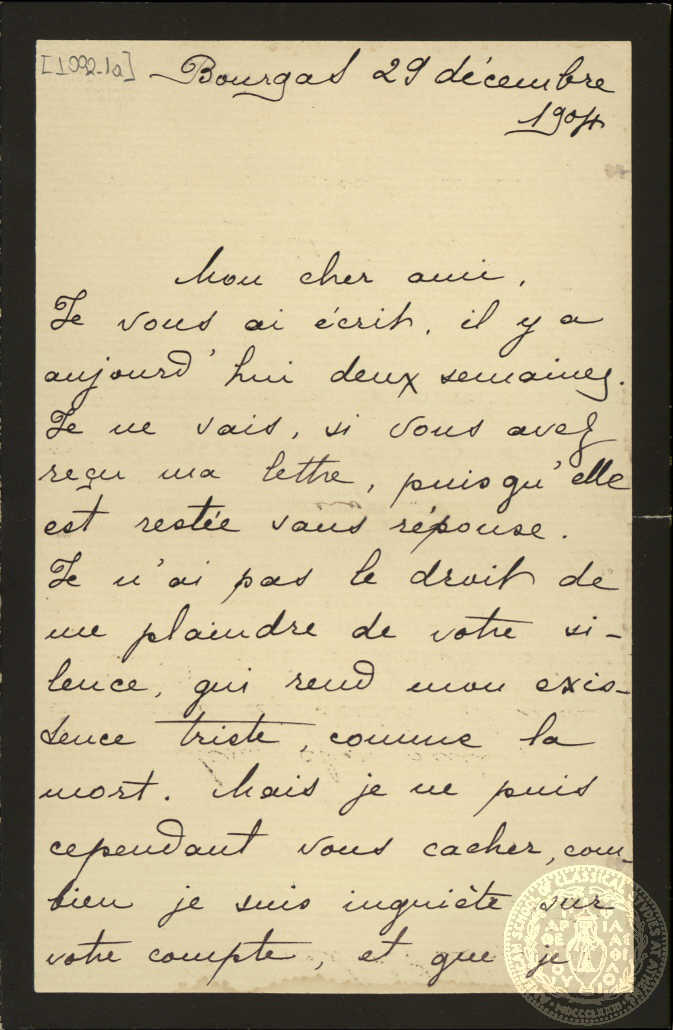 [1092-1a]
Bourgas 29 décembre
1904
Mon cher ami,
Je vous ai écrit, il y a
aujourd'hui deux semaines.
Je ne sais, si vous avez
reçu ma lettre, puisqu'elle
est restée sans réponse.
Je n'ai pas le droit de
me plaindre de votre si-
lence, qui rend mon exis-
tence triste, comme la
mort. Mais je ne puis
cependant vous cacher, com-
bien je suis inquiète sur
votre compte, et que je